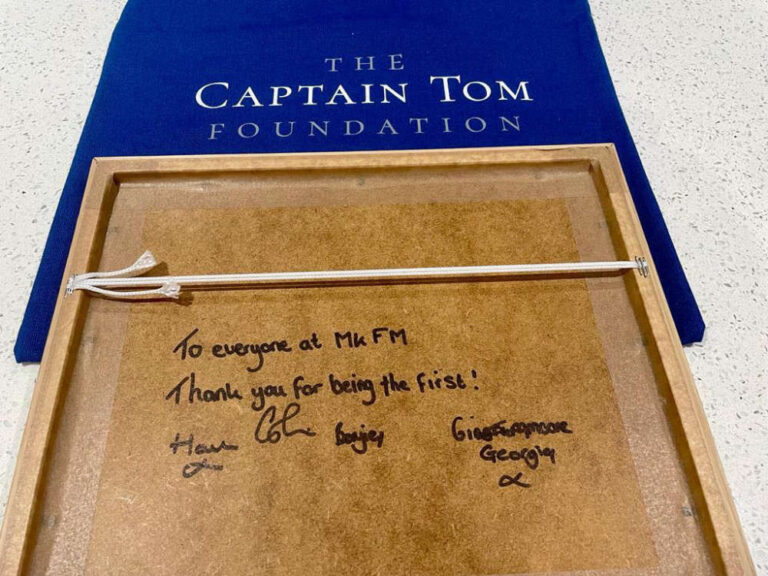 THE
CAPTAIN TOM
FOUNDATION
To everyone at MK FM
Thank you for being the first!
Colin Benjie
Georgia